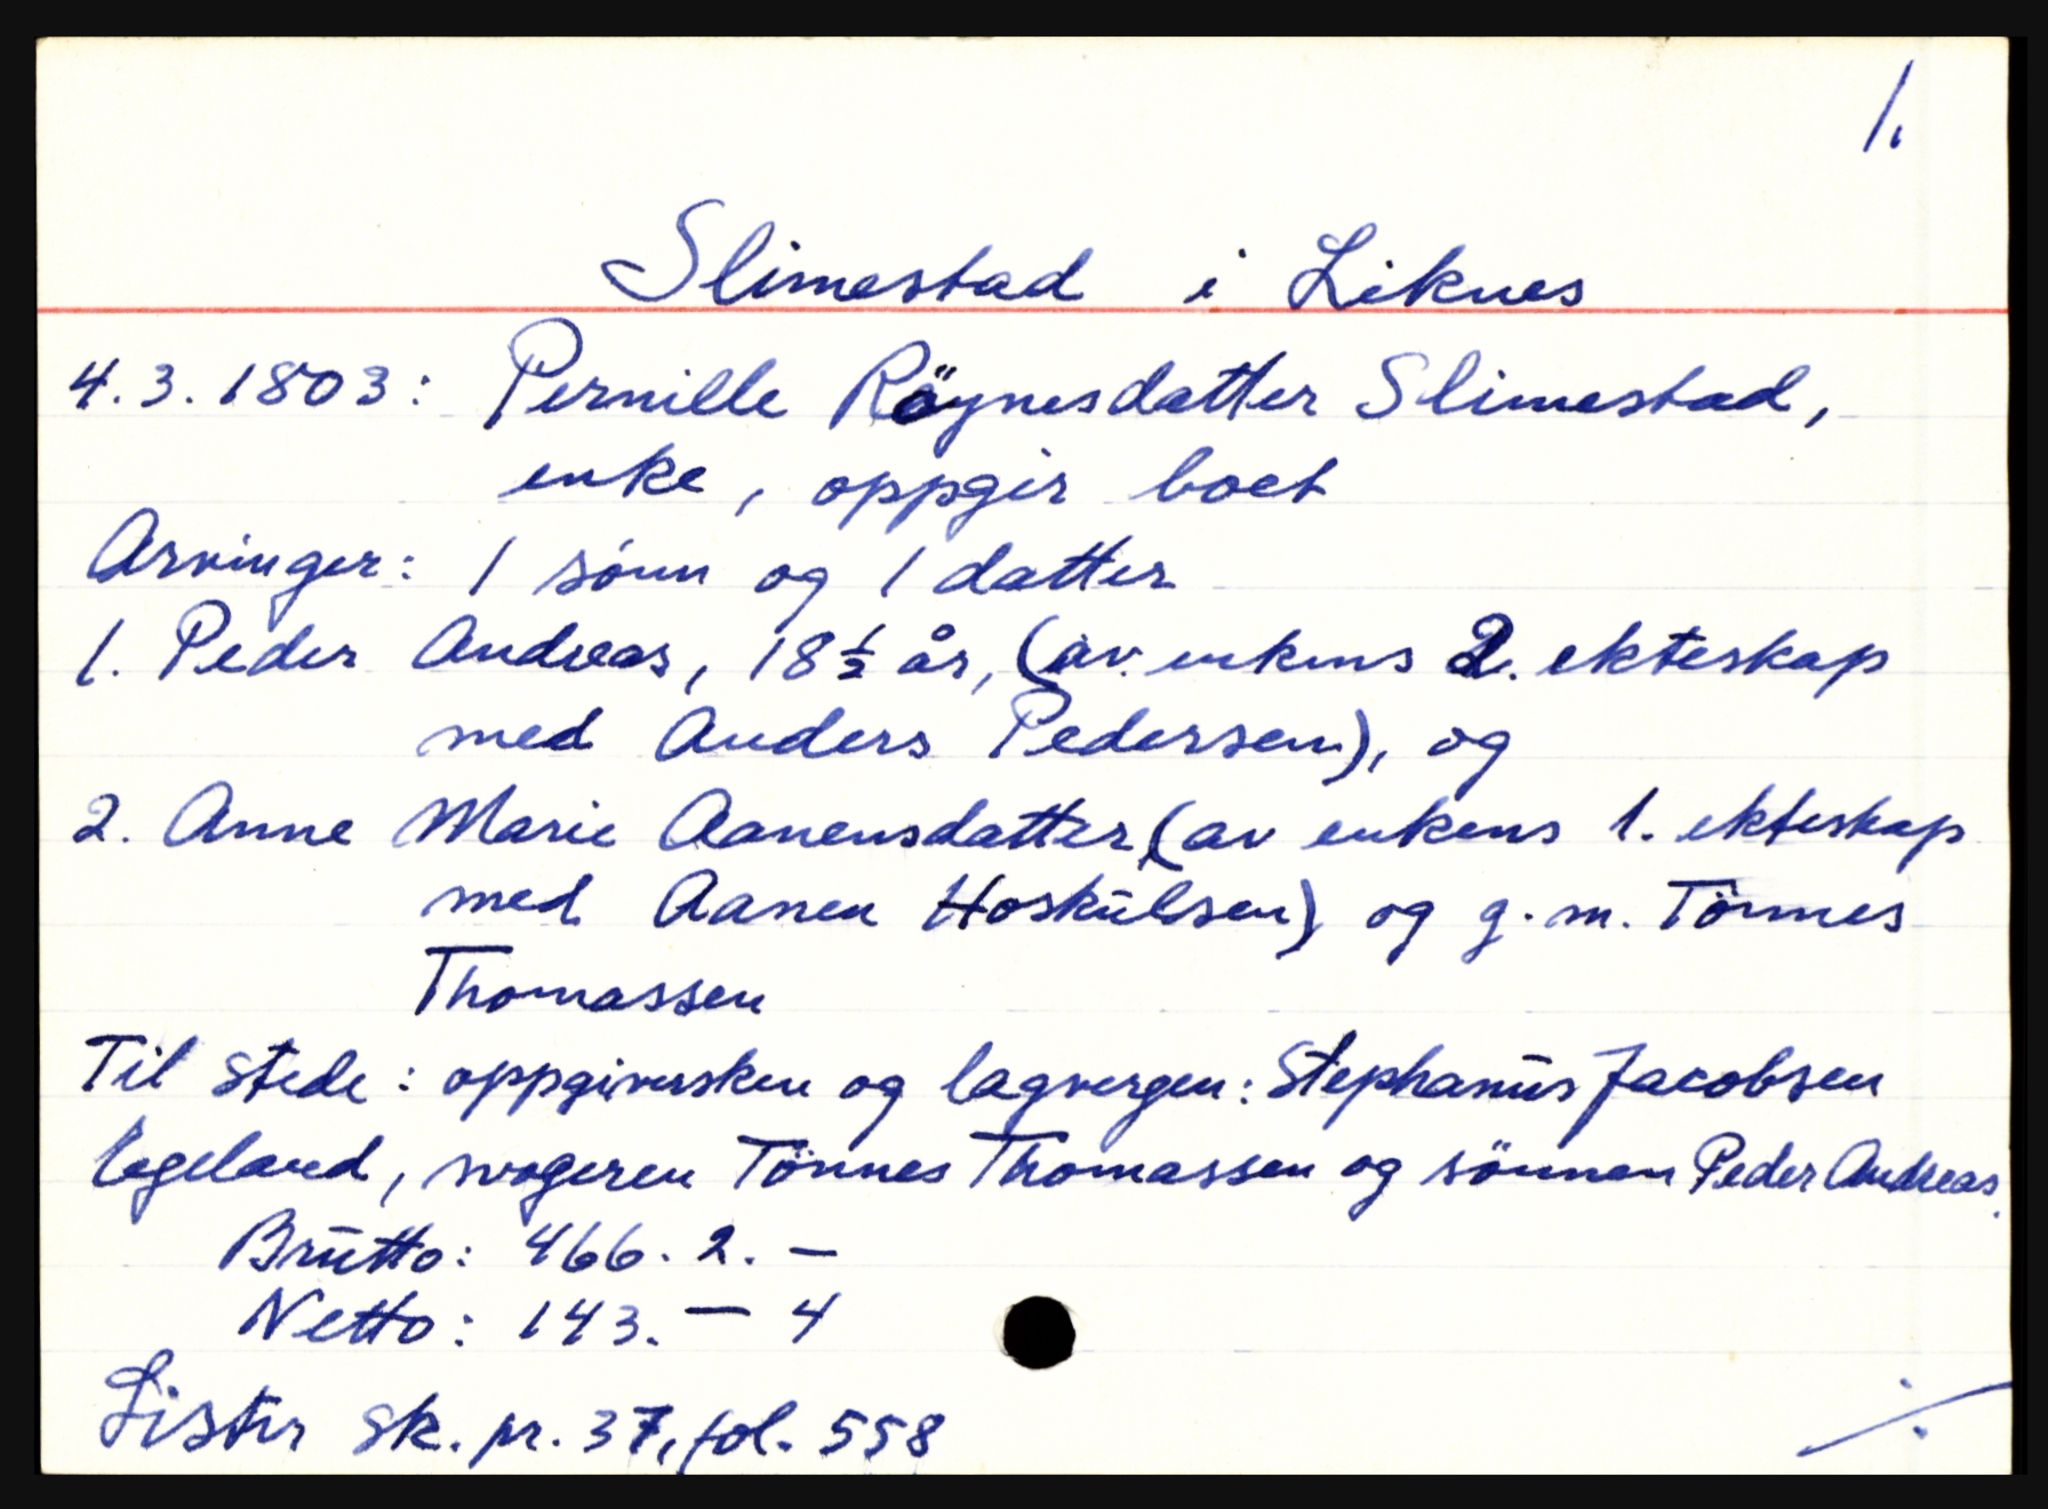 1.
Slimestad i Liknes
4.3.1803: Pernille Röynesdatter Slimestad,
enke, oppgir boet
Arvinger: 1 sönn og 1 datter
1. Peder Andreas, 18 ½ år, (av enkens 2. ekteskap
med Anders Pedersen), og
2. Anne Marie Aanensdatter (av enkens 1. ekteskap
med Aanen Hoskulsen) og g. m. Tönnes
Thomassen
Til stede: oppgiversken og lagvergen: Stephanus Jacobsen
Egeland, svogeren Tönnes Thomassen og sönnen Peder Andreas.
Brutto: 466. 2. —
Netto: 143. — 4
Lister sk. pr. 37, fol. 558
./.